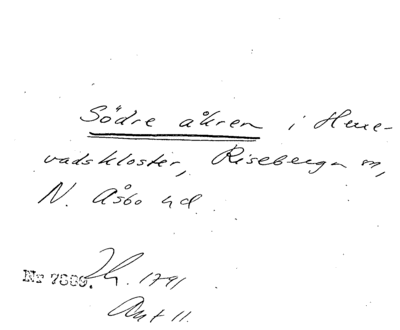 Södre åkren i Herre-
vadskloster, Riseberga sn,
N. Åsbo hd.
Nr 7889. Lh. 1791
Akt 11.